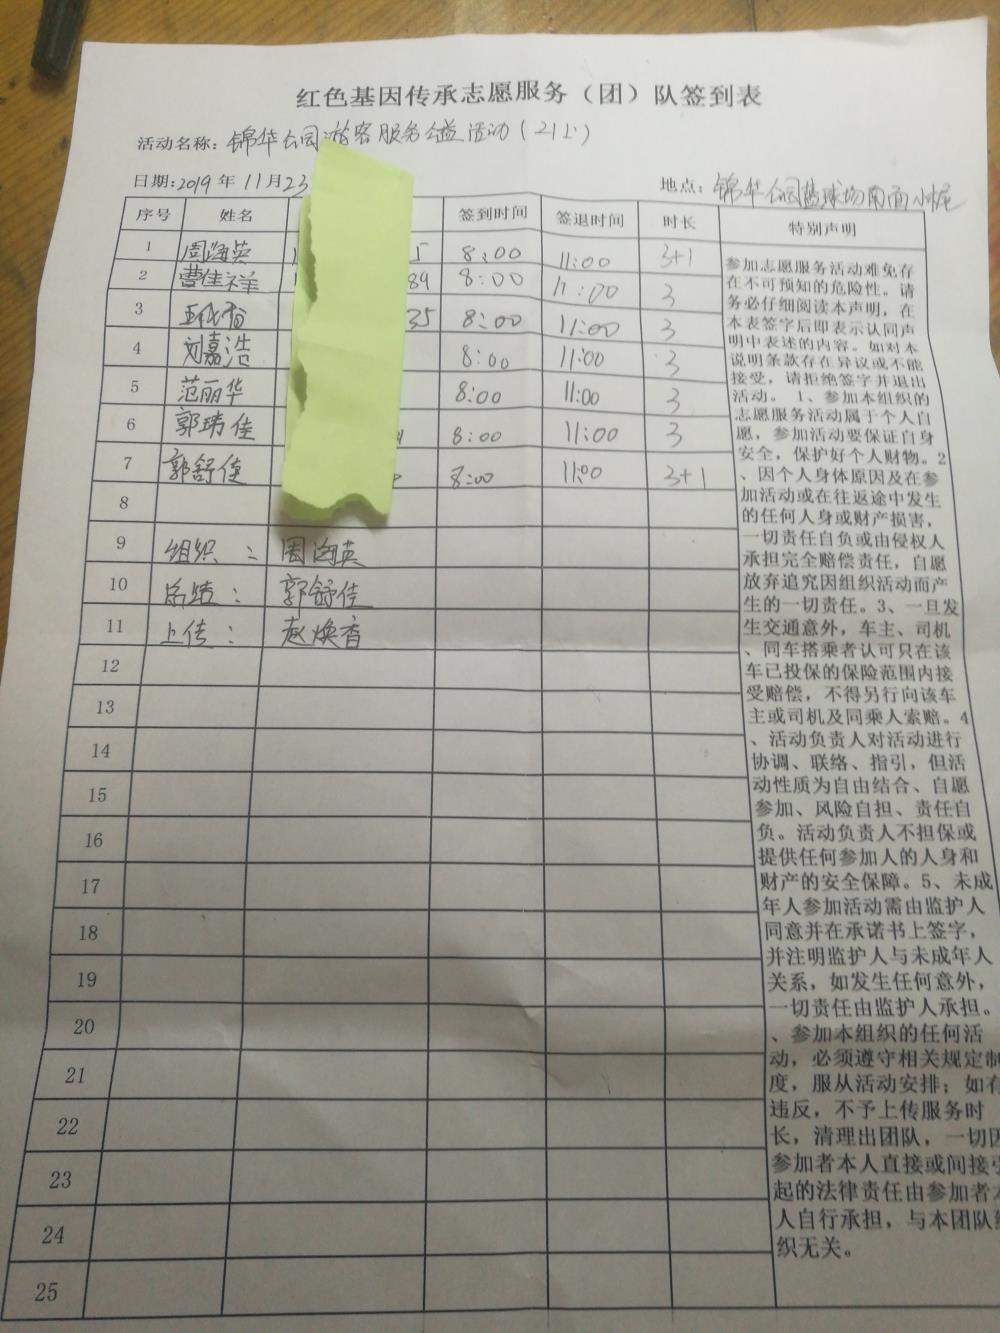 红色基因传承志愿服务（团）队签到表
活动名称：锦华公园游客服务公益活动（21上）
日期：2019年11月23
地点：锦华公园篮球场南面小屋
序号 姓名 签到时间 签退时间 时长 特别声明
1 周海英 5 8:00 11:00 3+1
2 曹佳祥 89 8:00 11:00 3
3 35 8:00 11:00 3
4 刘嘉浩 8:00 11:00 3
5 范丽华 8:00 11:00 3
6 郭玮佳 8:00 11:00 3
7 郭舒佳 8:00 11:00 3+1
8
9 组织： 周海英
10 后续： 郭舒佳
11 上传： 赵焕香
12
13
14
15
16
17
18
19
20
21
22
23
24
25
参加志愿服务活动难免存
在不可预知的危险性。请
务必仔细阅读本声明，在
本表签字后即表示认同声
明中表述的内容。如对本
说明条款存在异议或不能
接受，请拒绝签字并退出
活动。 1、参加本组织的
志愿服务活动属于个人自
愿，参加活动要保证自身
安全，保护好个人财物。2
、因个人身体原因及在参
加活动或在往返途中发生
的任何人身或财产损害，
一切责任自负或由侵权人
承担完全赔偿责任，自愿
放弃追究因组织活动而产
生的一切责任。3、一旦发
生交通意外，车主、司机
、同车搭乘者认可只在该
车已投保的保险范围内接
受赔偿，不得另行向该车
主或司机及同乘人索赔。4
、活动负责人对活动进行
协调、联络、指引，但活
动性质为自由结合、自愿
参加、风险自担、责任自
负。活动负责人不担保或
提供任何参加人的人身和
财产的安全保障。5、未成
年人参加活动需由监护人
同意并在承诺书上签字，
并注明监护人与未成年人
关系，如发生任何意外，
一切责任由监护人承担。
、参加本组织的任何活
动，必须遵守相关规定制
度，服从活动安排；如有
违反，不予上传服务时
长，清理出团队，一切因
参加者本人直接或间接引
起的法律责任由参加者本
人自行承担，与本团队组
织无关。